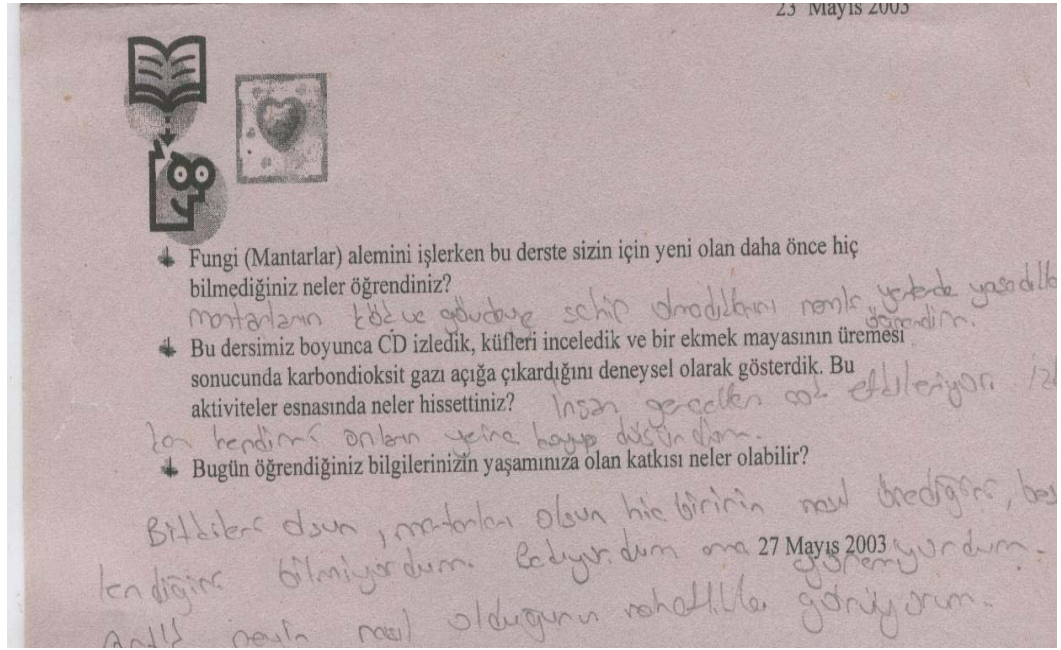 23 Mayıs 2003
Fungi (Mantarlar) alemini işlerken bu derste sizin için yeni olan daha önce hiç
bilmediğiniz neler öğrendiniz?
mantarların kök ve gövdeye sahip olmadıklarını nemli yerlerde
öğrendim.
Bu dersimiz boyunca CD izledik, küfleri inceledik ve bir ekmek mayasının üremesi
sonucunda karbondioksit gazı açığa çıkardığını deneysel olarak gösterdik. Bu
aktiviteler esnasında neler hissettiniz? İnsan gerçekten çok etkileniyor.
kendimi onların yerine koyup düşündüm.
Bugün öğrendiğiniz bilgilerinizin yaşamınıza olan katkısı neler olabilir?
Bitkiler olsun, mantarlar olsun hiç birinin nasıl ürediğini, bes
lendiğini bilmiyordum. ama 27 Mayıs 2003 göremiyordum.
Artık neyin nasıl olduğunu rahatlıkla görüyorum.